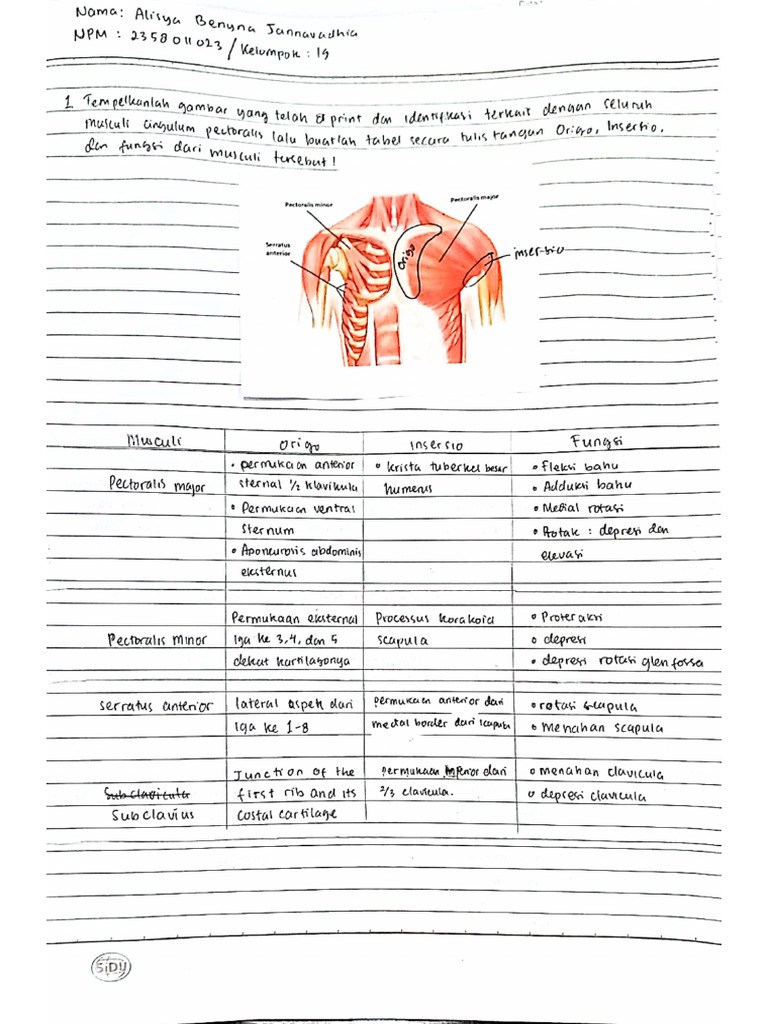 Nama: Alisya Benyna Jannavadhia
NPM : 2358011023 / Kelompok : 19
1. Tempelkanlah gambar yang telah di print dan identifikasi terkait dengan seluruh
musculi cingulum pectoralis lalu buatlah tabel secara tulis tangan Origo, Insersio,
dan fungsi dari musculi tersebut!
Pectoralis minor
Pectoralis major
Serratus
anterior
Origo
insersio
Musculi Origo Insersio Fungsi
Pectoralis major
• permukaan anterior
sternal 1/2 klavikula
• Permukaan ventral
sternum
• Aponeurosis abdominis
eksternus
• krista tuberkel besar
humerus
• Fleksi bahu
• Adduksi bahu
• Medial rotasi
• Rotak : depresi dan
elevasi
Pectoralis minor
Permukaan eksternal
Iga ke 3, 4, dan 5
dekat kartilagonya
Processus korakoid
scapula
• Proteraksi
• depresi
• depresi rotasi glen fossa
serratus anterior
lateral aspek dari
Iga ke 1-8
permukaan anterior dari
medial border dari scapula
• rotasi scapula
• Menahan scapula
Subclavicula
Subclavius
Junction of the
first rib and its
costal cartilage
permukaan inferior dari
2/3 clavicula.
• menahan clavicula
• depresi clavicula
SIDU